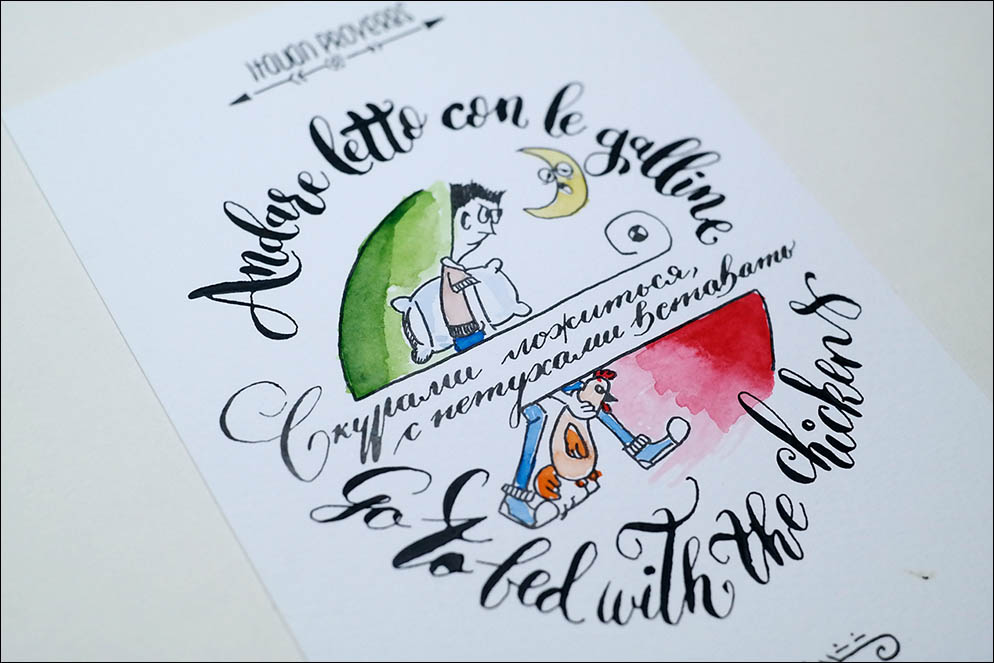 Italian PROVERBS
Andare letto con le galline
С курами ложиться,
с петухами вставать
Go to bed with the chickens